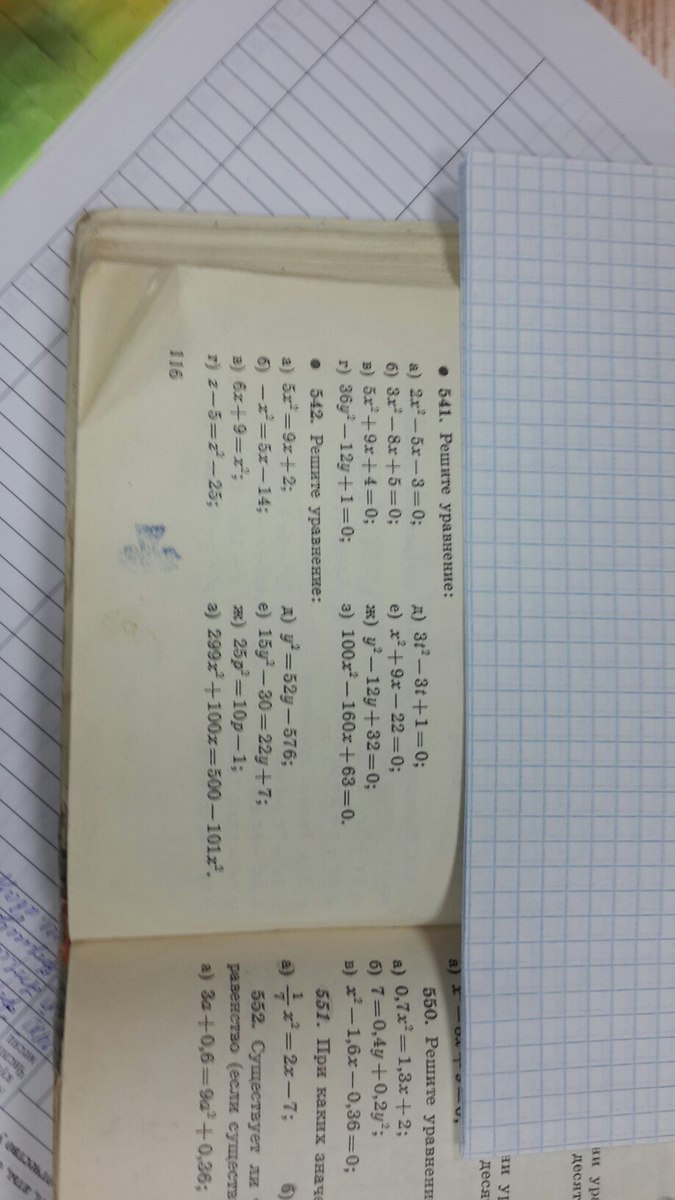 ● 541. Решите уравнение:
а) 2x² − 5x − 3 = 0;
б) 3x² − 8x + 5 = 0;
в) 5x² + 9x + 4 = 0;
г) 36y² − 12y + 1 = 0;
д) 3t² − 3t + 1 = 0;
е) x² + 9x − 22 = 0;
ж) y² − 12y + 32 = 0;
з) 100x² − 160x + 63 = 0.
● 542. Решите уравнение:
а) 5x² = 9x + 2;
б) −x² = 5x − 14;
в) 6x + 9 = x²;
г) z − 5 = z² − 25;
д) y² = 52y − 576;
е) 15y² − 30 = 22y + 7;
ж) 25p² = 10p − 1;
з) 299x² + 100x = 500 − 101x².
116
550. Решите уравнени
а) 0,7x² = 1,3x + 2;
б) 7 = 0,4y + 0,2y²;
в) x² − 1,6x − 0,36 = 0;
551. При каких знач
а) 1/7 x² = 2x − 7; б)
552. Существует ли
равенство (если существ
а) 3a + 0,6 = 9a² + 0,36;